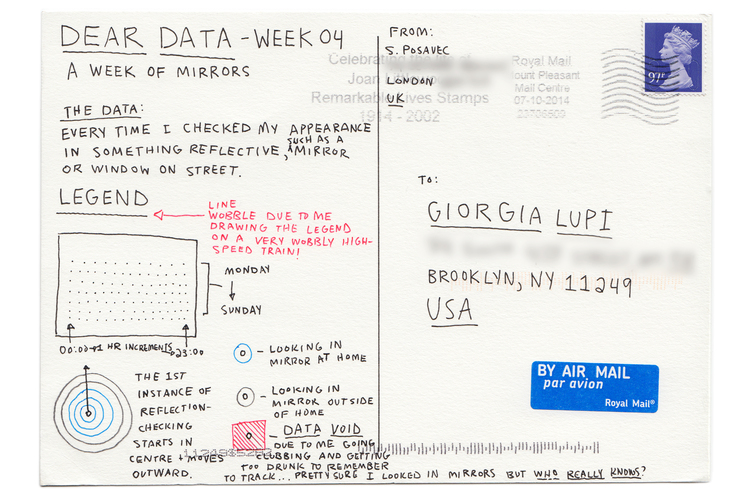 DEAR DATA - WEEK 04
A WEEK OF MIRRORS
THE DATA:
EVERY TIME I CHECKED MY APPEARANCE
IN SOMETHING REFLECTIVE, SUCH AS A MIRROR
OR WINDOW ON STREET.
LEGEND
LINE
WOBBLE DUE TO ME
DRAWING THE LEGEND
ON A VERY WOBBLY HIGH-
SPEED TRAIN!
MONDAY
SUNDAY
00:00 1 HR INCREMENTS 23:00
LOOKING IN
MIRROR AT HOME
LOOKING IN
MIRROR OUTSIDE
OF HOME
DATA VOID
DUE TO ME GOING
CLUBBING AND GETTING
TOO DRUNK TO REMEMBER
TO TRACK... PRETTY SURE I LOOKED IN MIRRORS BUT WHO REALLY KNOWS?
THE 1ST
INSTANCE OF
REFLECTION-
CHECKING
STARTS IN
CENTRE + MOVES
OUTWARD.
FROM:
S. POSAVEC
LONDON
UK
Celebrating the life of
Joan
Remarkable Lives Stamps
1914 - 2002
Royal Mail
ount Pleasant
Mail Centre
07-10-2014
97P
TO:
GIORGIA LUPI
BROOKLYN, NY 11249
USA
BY AIR MAIL
par avion
Royal Mail®